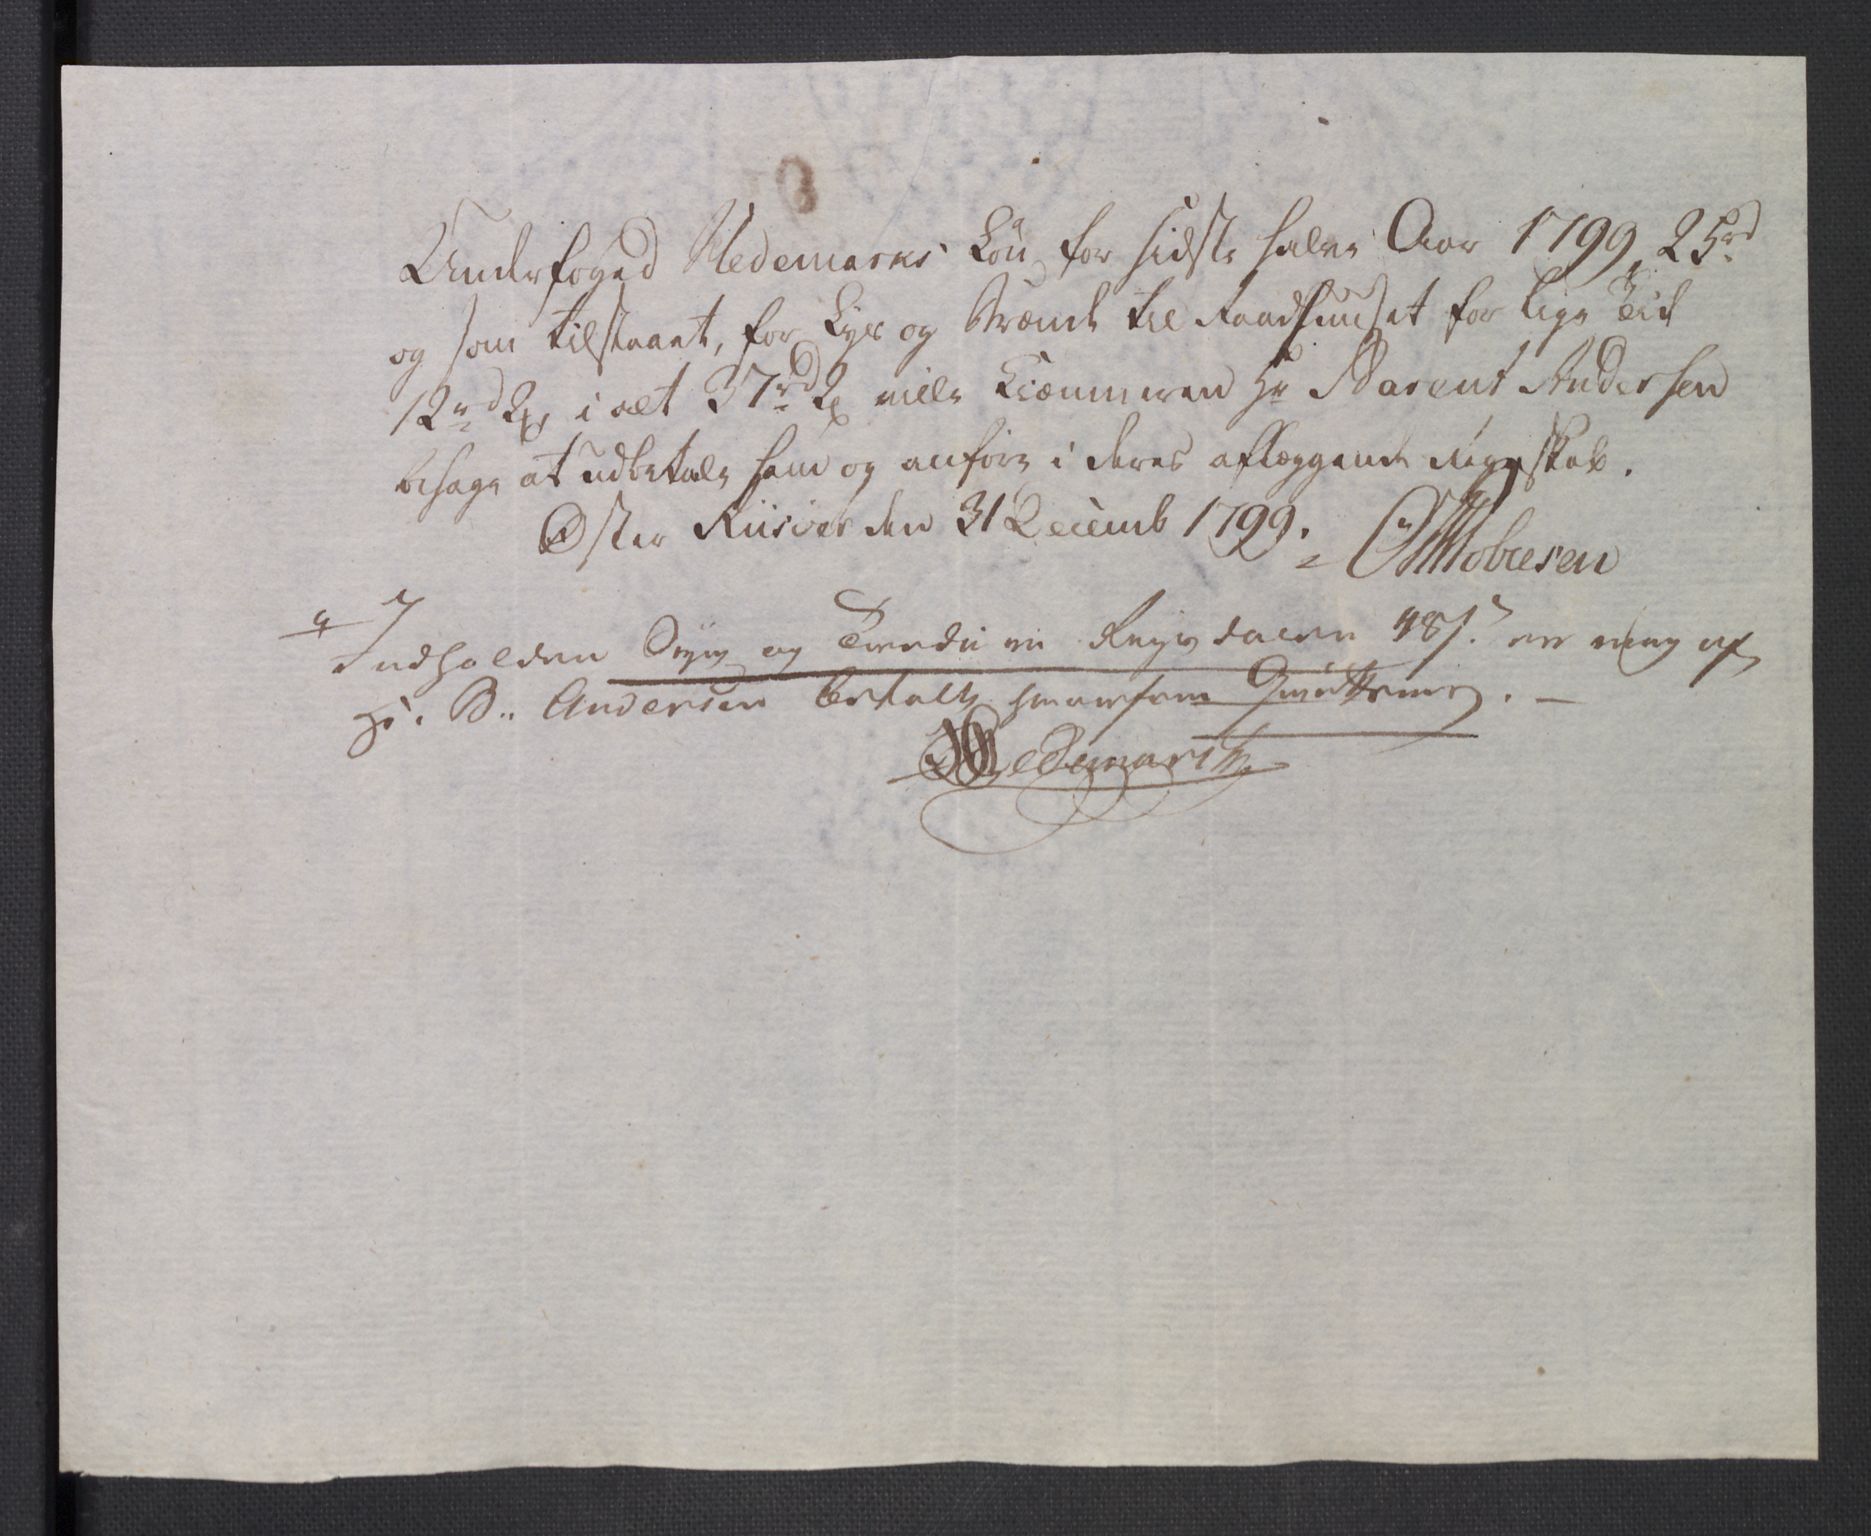 Underfoged Hedemarks Løn for sidste halve Aar 1799, 25 rd
og som tilstaaet, for Lys og Brænde til Raadhuuset for lige Tid
12 rd i alt 37 rd ville Kiæmmeren Hr Barent Andersen
behage at udbetale ham og anføre i deres aflæggende Regnskab.
Øster Riisøer den 31 Decemb 1799.
Indholden Syv og Tredive Rigsdaler 48 s. er mig af
Hr. B. Andersen betalt, hvorfore Qvitterer. -
Hedemark